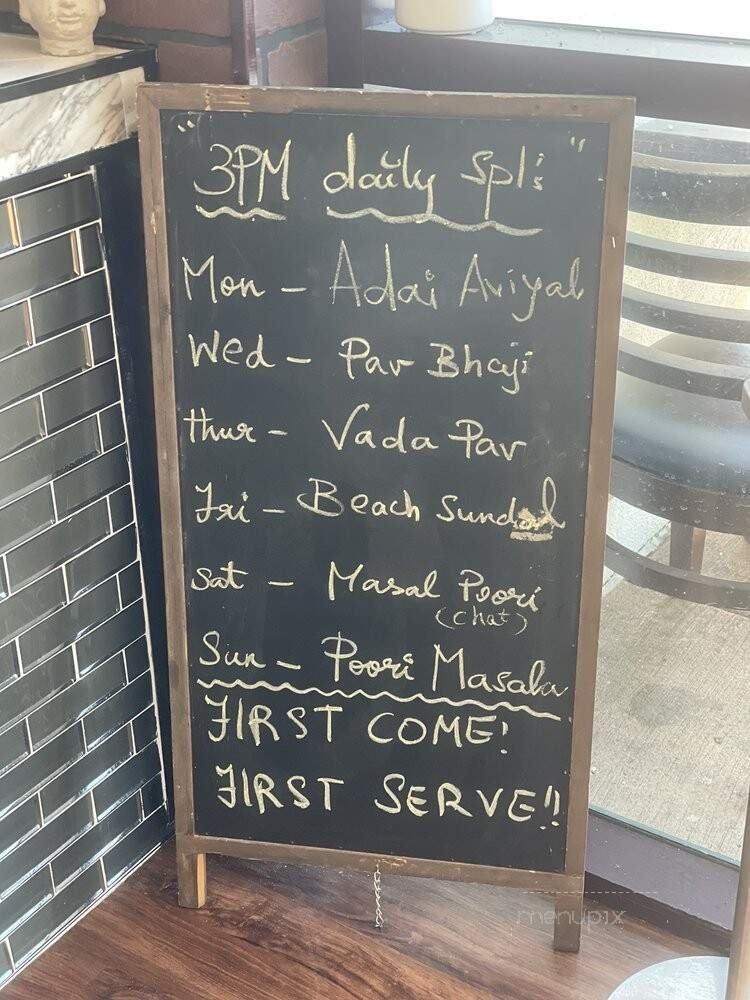 "3PM daily Spl: "
Mon - Adai Aviyal
Wed - Pav Bhaji
thur - Vada Pav
Fri - Beach Sundal
Sat - Masal Poori
(Chat)
Sun - Poori Masala
FIRST COME!
FIRST SERVE!!
menupix